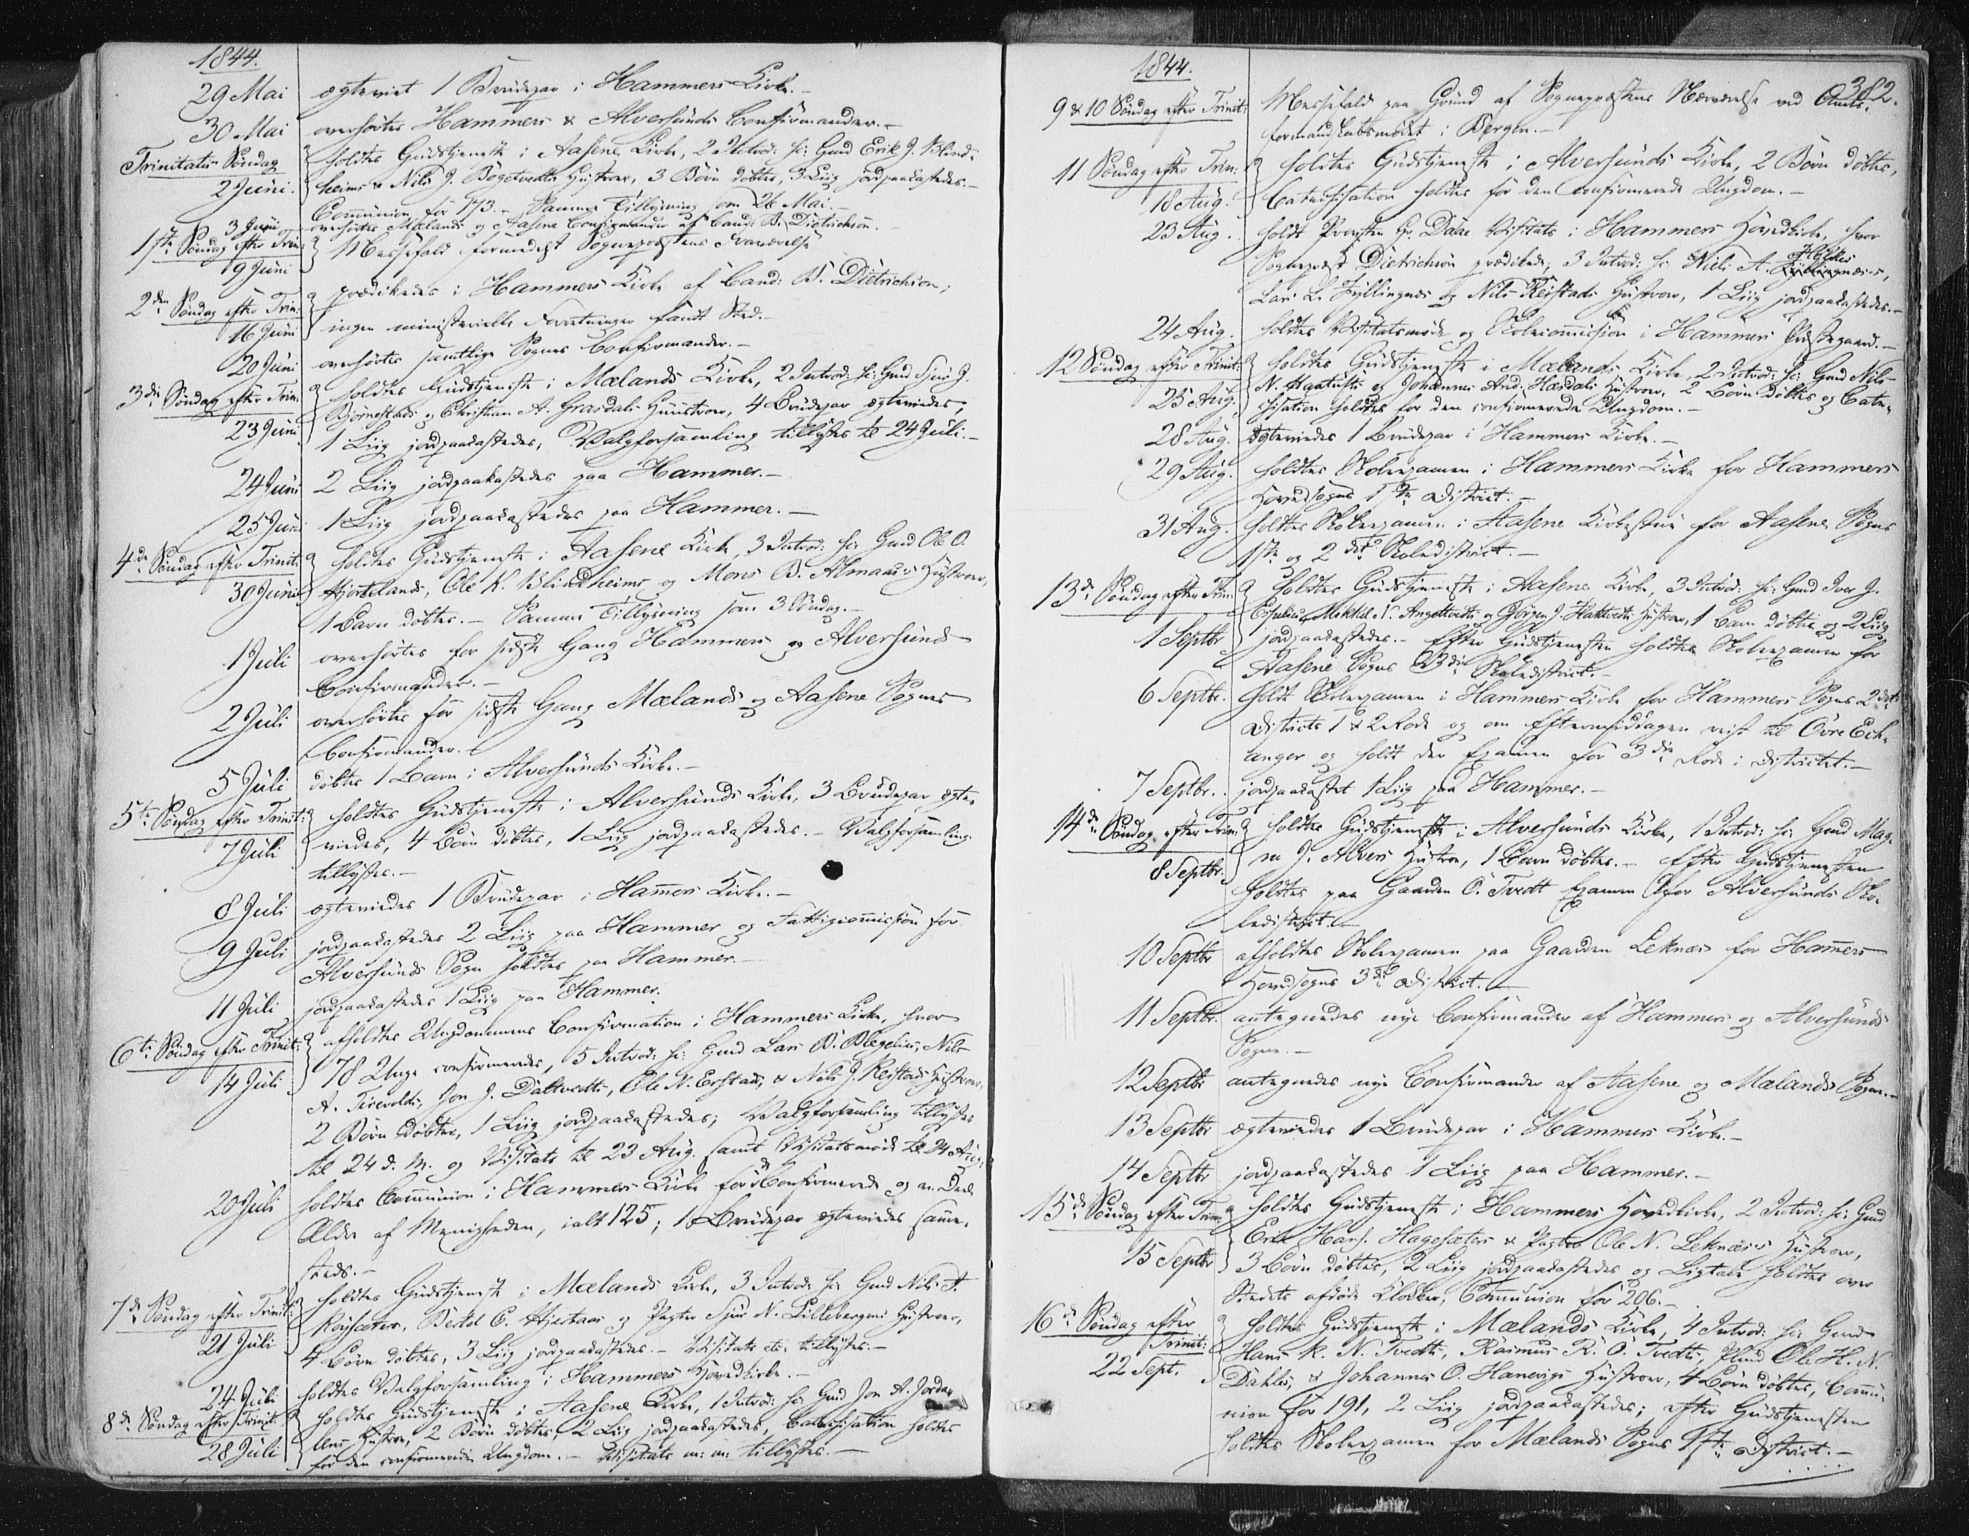 1844.
29 Mai ægteviet 1 Brudepar i Hammers Kirke.-
30 Mai overhørtes Hammers & Alversunds Confirmander.-
Trinitatis Søndag holdtes Gudstjeneste i Aasene Kirke, 2 Introd: f: Gmd Erik J. Blind-
2 Juni. heims & Nils J. Bøgetvedts Hustroer, 3 Børn døbtes, 3 Liig jordpaakastedes.-
Communion for 173.- Samme Tillysning som 26 Mai.-
3 Juni overhørtes Mælands og Aasene Confirmander af Cand: B. Dietrichson.
1ste Søndag efter Trin: Messefald formedelst Sognepræstens Fraværelse
9 Juni
2den Søndag efter Trin: prædikedes i Hammers Kirke af Cand: B. Dietrichson,
16 Juni ingen ministerielle Forretninger fandt Sted.-
20 Juni overhørtes samtlige Sognes Confirmander.-
3die Søndag efter Trin: holdtes Gudstjeneste i Mælands Kirke, 2 Introd: f: Gmd Sjur J.
Bjørnestads og Christian A. Grasdals Hustroer, 4 Brudepar ægteviedes,
23 Juni 1 Liig jordpaakastedes, Valgforsamling tillystes til 24 Juli.-
24 Juni 2 Liig jordpaakastedes paa Hammer.-
25 Juni 1 Liig jordpaakastedes paa Hammer.-
4de Søndag efter Trinit: holdtes Gudstjeneste i Aasene Kirke, 3 Introd: f: Gmd Ole O.
30 Juni Hjortelands, Ole K. Blindheims og Mons B. Almaas's Hustroer,
1 Barn døbtes.- Samme Tillysning som 3 Søndag.-
1 Juli overhørtes for sidste Gang Hammers og Alversunds
Confirmander.-
2 Juli overhørtes for sidste Gang Mælands og Aasene Sognes
Confirmander.-
5 Juli døbtes 1 Barn i Alversunds Kirke.-
5te Søndag efter Trinit: holdtes Gudstjeneste i Alversunds Kirke, 3 Brudepar ægte-
7 Juli viedes, 4 Børn døbtes, 1 Liig jordpaakastedes.- Valgforsamling
tillystes.-
8 Juli ægteviedes 1 Brudepar i Hammers Kirke.-
9 Juli jordpaakastedes 2 Liig paa Hammer og Fattigcommission for
Alversunds Sogn holdtes paa Hammer.-
11 Juli jordpaakastedes 1 Liig paa Hammer.
6te Søndag efter Trinit: afholdtes Ungdommens Confirmation i Hammers Kirke, hvor
14 Juli 78 Unge confirmeredes, 5 Introd: f: Gmd Lars B. Nils
A. Jon J. Daltvedts, Ole N. Erstad, & Nils J. Reistads Hustroer,
2 Børn døbtes, 1 Liig jordpaakastedes; Valgforsamling tillystes
til 24 d. M. og Visitats til 23 Aug. samt Visitatsmøde til 24 Aug:
20 Juli holdtes Communion i Hammers Kirke for Confirmerede og en Deel
Ældre af Menigheden, ialt 125; 1 Brudepar ægteviedes samme-
steds.-
7de Søndag efter Trinit: holdtes Gudstjeneste i Mælands Kirke, 3 Introd: f: Gmd Nils A.
Bertel C. Hjertaas og Pagter Sjur N. Lillebergens Hustroer,
21 Juli 4 Børn døbtes, 3 Liig jordpaakastedes.- Visitats etc. tillystes.-
24 Juli holdtes Valgforsamling i Hammers Hovedkirke.-
8de Søndag efter Trinit. holdtes Gudstjeneste i Aasene Kirke, 1 Introd: f: Gmd Jon A. Jordal
lens Hustroe, 2 Børn døbtes, 2 Liig jordpaakastedes, Catechisation holdtes
28 Juli for den confirmerede Ungdom.- Visitats m: m: tillystes.-
1844.
382.
9 & 10 Søndag efter Trinit: Messefald paa Grund af Sognepræstens Nærværelse ved Amts-
formandskabsmødet i Bergen.-
11 Søndag efter Trin: holdtes Gudstjeneste i Alversunds Kirke, 2 Børn døbtes,
18 Aug. Catechisation holdtes for den confirmerede Ungdom.-
23 Aug. holdt Provsten Hr. Daae Visitats i Hammers Hovedkirke, hvor
Sognepræst Dietrichson prædikede, 3 Introd: f: Niels A.
Lars L. Hyllingnes og Nils Reistads Hustroer, 1 Liig jordpaakastedes.-
24 Aug. holdtes Visitatsmøde og Skolecommission i Hammers Præstegaard.-
12 Søndag efter Trinit: holdtes Gudstjeneste i Mælands Kirke, 2 Introd: f: Gmd Nils
N. og Johannes And: Hærdals Hustroer, 2 Børn døbtes og Cate-
25 Aug. chisation holdtes for den confirmerede Ungdom.-
28 Aug. ægteviedes 1 Brudepar i Hammers Kirke.-
29 Aug. holdtes Skoleexamen i Hammers Kirke for Hammers
Hovedsogns 1ste District.-
31 Aug. holdtes Skoleexamen i Aasene Kirkestue for Aasene Sogns
1ste og 2det Skoledistrict.-
13de Søndag efter Trin: holdtes Gudstjeneste i Aasene Kirke, 3 Introd: f: Gmd Iver J.
Mikkel N. Angeltvedts og Jørgen J. Haktvedts Hustroer, 1 Barn døbtes og 2 Liig
1 Septbr. jordpaakastedes.- Efter Gudstjenesten holdtes Skoleexamen for
Aasene Sogns 3die Skoledistrict.-
6 Septbr. holdt Skoleexamen i Hammers Kirke for Hammers Sogns 2det
Districts 1 & 2 Rode og om Eftermiddagen reist til Øvre Eik-
anger og holdt der Examen for 3die Rode i Districtet.-
7 Septbr. jordpaakastet 1 Liig paa Hammer.-
14de Søndag efter Trin: holdtes Gudstjeneste i Alversunds Kirke, 1 Introd: f: Gmd Mag-
ne J. Alvers Hustroe, 1 Barn døbtes.- Efter Gudstjenesten
8 Septbr. holdtes paa Gaarden Ö. Tvedt Examen for Alversunds Sko-
ledistrict.-
10 Septbr afholdtes Skoleexamen paa Gaarden Leknæs for Hammers
Hovedsogns 3die District.-
11 Septbr. antegnedes nye Confirmander af Hammers og Alversunds
Sogne.-
12 Septbr antegnedes nye Confirmander af Aasene og Mælands Sogne.-
13 Septbr ægteviedes 1 Brudepar i Hammers Kirke.-
14 Septbr jordpaakastedes 1 Liig paa Hammer.-
15de Søndag efter Trin: holdtes Gudstjeneste i Hammers Hovedkirke, 2 Introd: f: Gmd
Erik Hans. Hagesæters & Pagter Ole N. Leknæs's Hustroer,
15 Septbr 3 Børn døbtes, 2 Liig jordpaakastedes og Ligtale holdtes over
Stedets afdøde Klokker, Communion for 206.-
16de Søndag efter Trinit: holdtes Gudstjeneste i Mælands Kirke, 4 Introd: f: Gmd
Hans K. N. Tvedts, Rasmus R. Ö. Tvedts, Hmd Ole H. N.
22 Sept. Dahles, & Johannes O. Hanevigs Hustroer, 4 Børn døbtes, Commu-
nion for 191, 2 Liig jordpaakastedes; efter Gudstjenesten
holdtes Skoleexamen for Mælands Sogns 1ste District.-